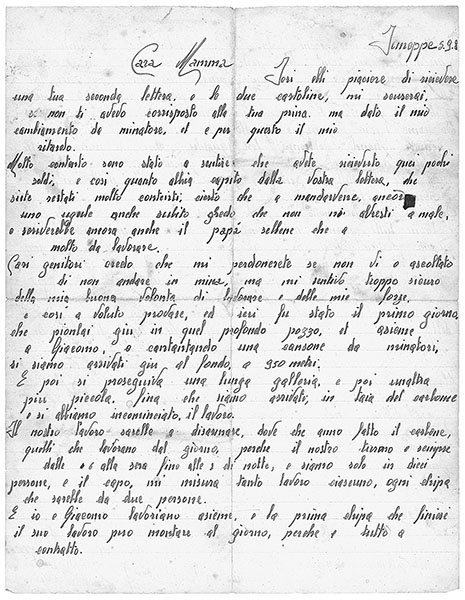 Jemeppe 5.9.8
Cara Mamma
Ieri ebbi piacere di ricievere
una tua seconda lettera, e le due cartoline, mi scuserai,
se non ti avevo corrisposto alla tua prima, ma dato il mio
cambiamento da minatore, et e per questo il mio
ritardo.
Molto contanto sono stato a sentire che avete ricievuto quei pochi
soldi, e cosi quanto abbia capito dalla vostra lettera, che
siete restati molto contenti, cierto che a mandarvene, ancora
uno uguale anche subito credo che non vi avresti a male,
e scriverebbe ancora anche il papá sebbene che a
molto da lavorare.
Cari genitori credo che mi perdonerete se non vi o ascoltato
di non andare in mina, ma mi sentivo troppo sicuro
della mia buona volonta di lavorare e delle mie forze,
e cosi a voluto provare, ed ieri fu stato il primo giorno,
che piontai giu in quel profondo pozzo, et assieme
a Giacomo, e cantantando una canzone da minatori,
si siamo arrivati giu al fondo, a 950 metri.
E poi si proseguiva una lunga galleria, e poi unaltra
piu piccola, fina che siamo arrivati, in taia del carbone
e si abbiamo incominciato, il lavoro.
Il nostro lavoro sarebbe a disarmare, dove che anno fatto il carbone,
quelli che lavorano dal giorno, perche il nostro turno e sempre
dalle 6 alla sera fino alle 2 di notte, e siamo solo in dieci
persone, e il capo, mi misura tanto lavoro ciascuno, ogni chipa
che sarebbe da due persone.
E io e Giacomo lavoriamo assieme, e la prima chipa che finisce
il suo lavoro puo montare al giorno, perche e tutto a
contratto.